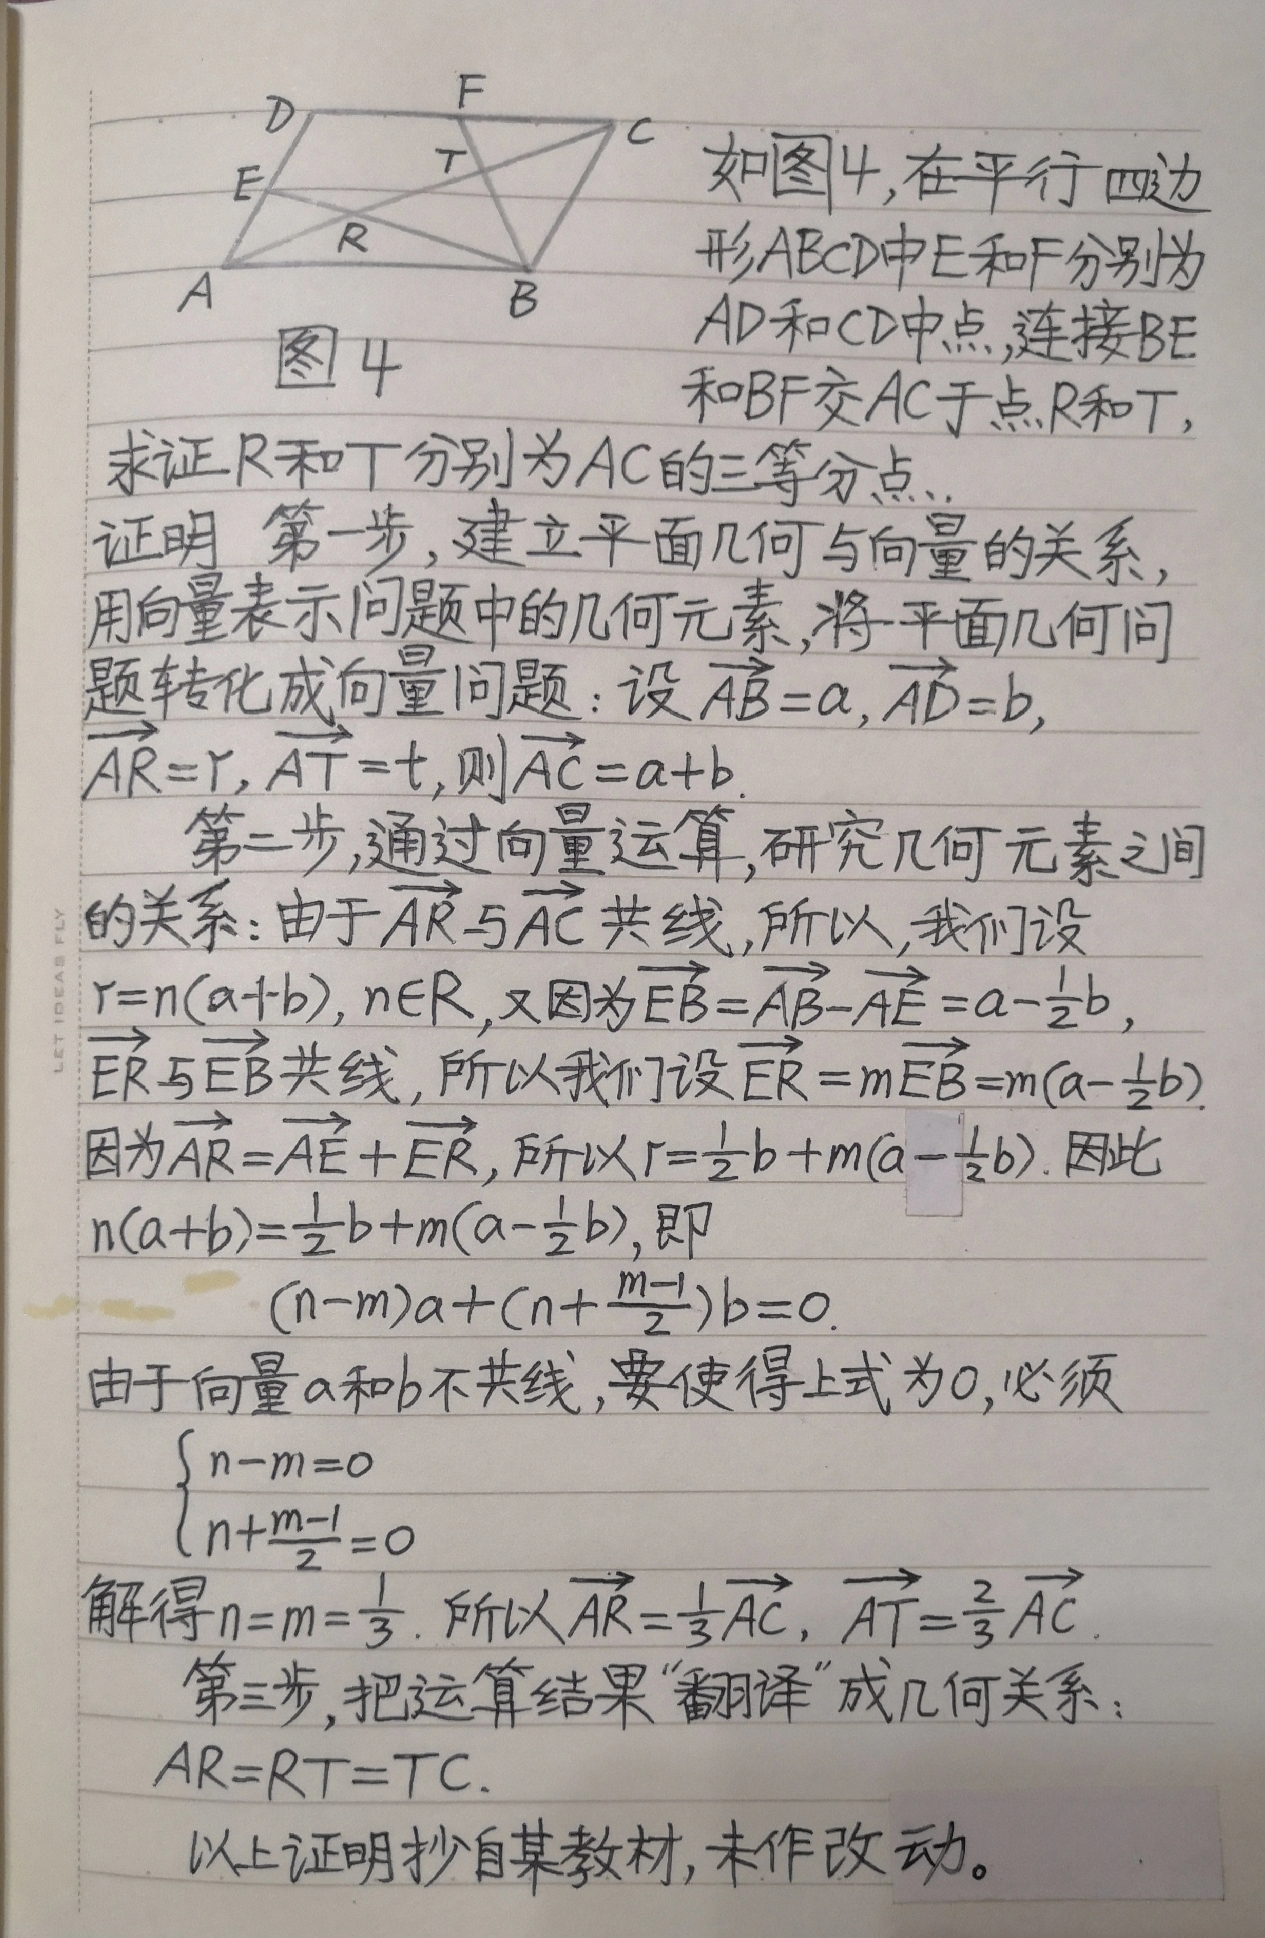 D
F
C
T
E
R
A
B
图4
如图4,在平行四边
形ABCD中E和F分别为
AD和CD中点,连接BE
和BF交AC于点R和T,
求证R和T分别为AC的三等分点.
证明 第一步,建立平面几何与向量的关系,
用向量表示问题中的几何元素,将平面几何问
题转化成向量问题:设$\overrightarrow{AB}$=a,$\overrightarrow{AD}$=b,
$\overrightarrow{AR}$=r,$\overrightarrow{AT}$=t,则$\overrightarrow{AC}$=a+b.
第二步,通过向量运算,研究几何元素之间
的关系:由于$\overrightarrow{AR}$与$\overrightarrow{AC}$共线,所以,我们设
r=n(a+b),n∈R,又因为$\overrightarrow{EB}$=$\overrightarrow{AB}$-$\overrightarrow{AE}$=a-$\frac{1}{2}$b,
$\overrightarrow{ER}$与$\overrightarrow{EB}$共线,所以我们设$\overrightarrow{ER}$=m$\overrightarrow{EB}$=m(a-$\frac{1}{2}$b).
因为$\overrightarrow{AR}$=$\overrightarrow{AE}$+$\overrightarrow{ER}$,所以r=$\frac{1}{2}$b+m(a-$\frac{1}{2}$b).因此
n(a+b)=$\frac{1}{2}$b+m(a-$\frac{1}{2}$b),即
(n-m)a+(n+$\frac{m-1}{2}$)b=0.
由于向量a和b不共线,要使得上式为0,必须
{n-m=0
n+$\frac{m-1}{2}$=0
解得n=m=$\frac{1}{3}$.所以$\overrightarrow{AR}$=$\frac{1}{3}$$\overrightarrow{AC}$,$\overrightarrow{AT}$=$\frac{2}{3}$$\overrightarrow{AC}$.
第三步,把运算结果“翻译”成几何关系:
AR=RT=TC.
以上证明抄自某教材,未作改动。
LET IDEAS FLY